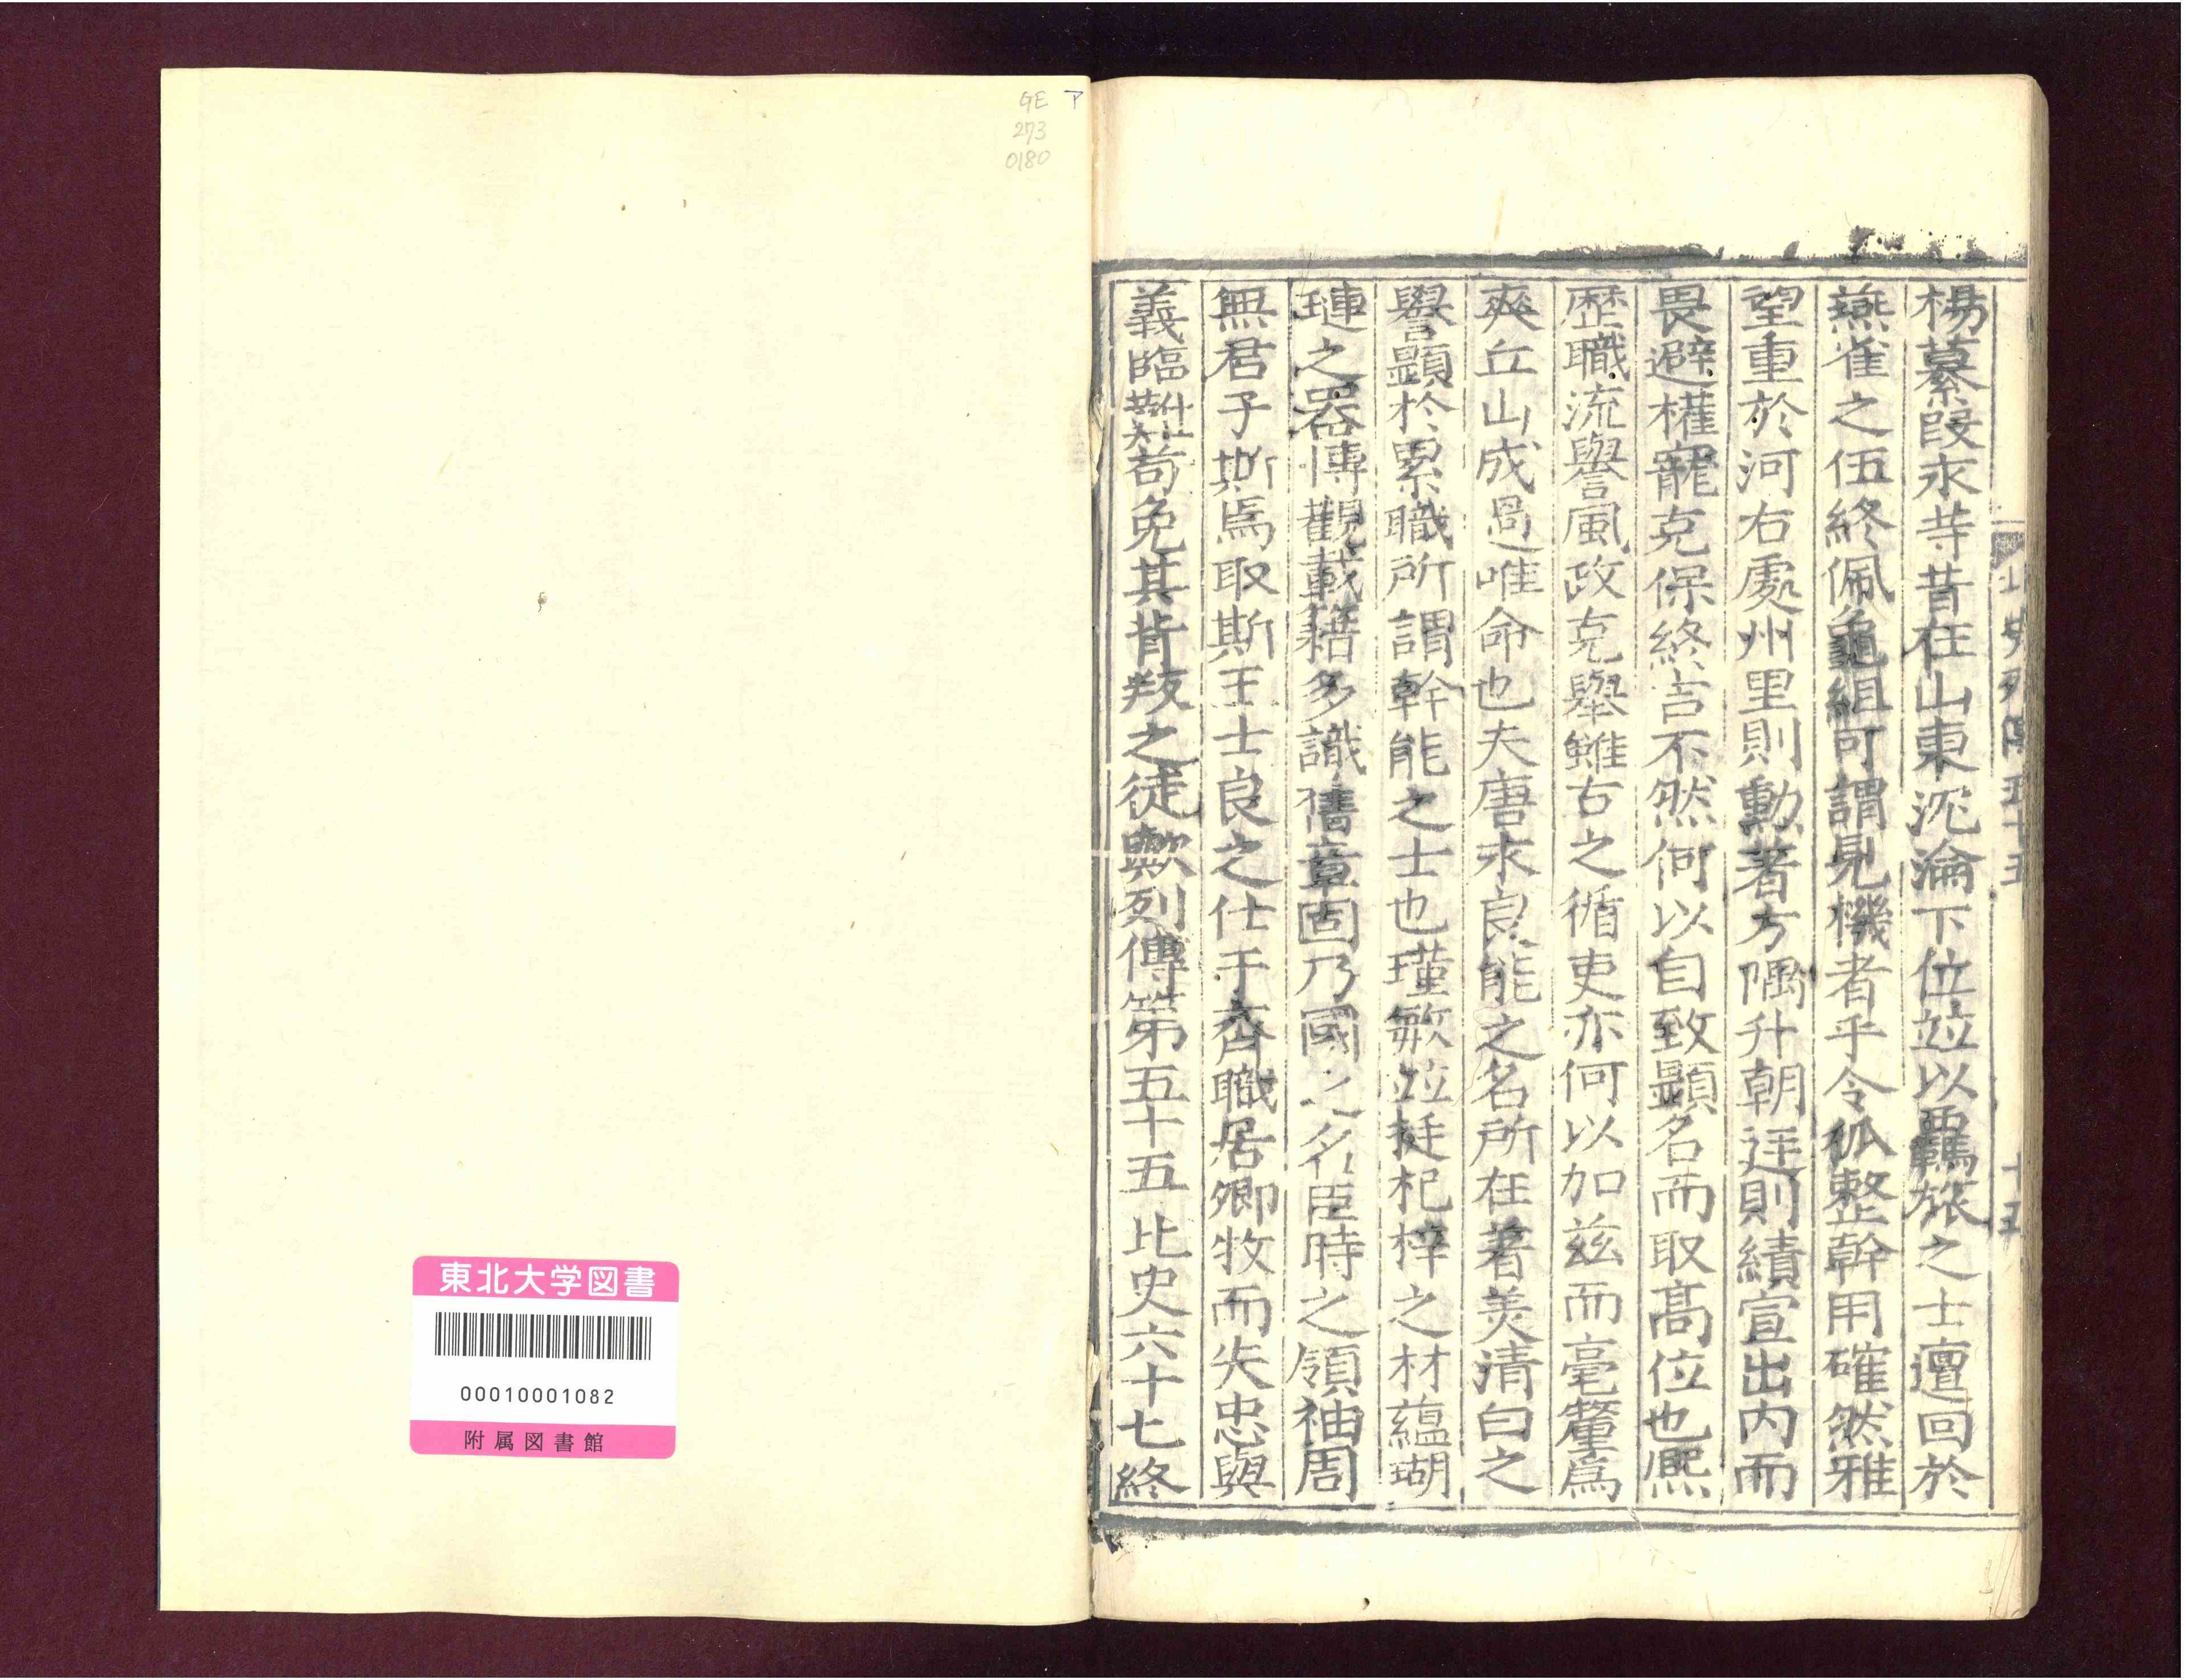 北史列傳五十五 十五
楊纂段永等昔在山東沉淪下位竝以羈旅之士邅回於
燕雀之伍終佩龜組可謂見機者乎令狐整幹用確然雅
望重於河右處州里則勳著方隅升朝廷則績宣出内而
畏避權寵克保終吉不然何以自致顯名而取髙位也熈
歷職流譽風政克舉雖古之循吏亦何以加兹而毫釐爲
爽丘山成過唯命也夫唐永良能之名所在著美清白之
譽顯於累職所謂幹能之士也瑾敏竝挺杞梓之材蘊瑚
璉之器博觀載籍多識舊章固乃國之名臣時之領袖周
無君子斯焉取斯王士良之仕于齊職居卿牧而失忠與
義臨難苟免其背叛之徒歟列傳第五十五 北史六十七終
GE
273
0180
東北大学図書
00010001082
附属図書館